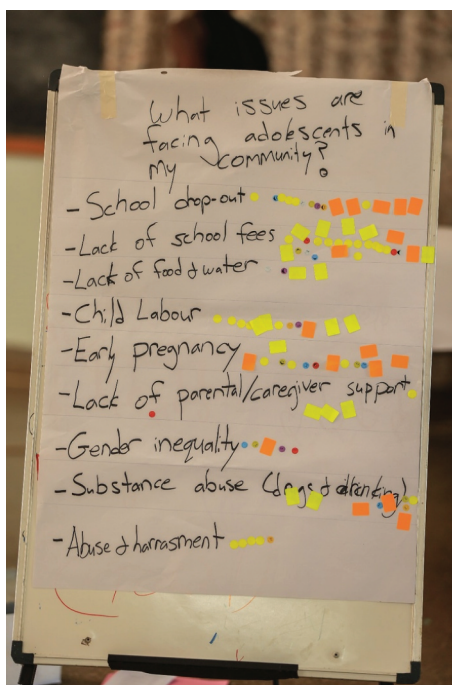 What issues are
facing adolescents in
my community?
- School drop-out
- Lack of school fees
- Lack of food & water
- Child Labour
- Early pregnancy
- Lack of parental/caregiver support
- Gender inequality
- Substance abuse (drugs & drinking)
- Abuse & harrasment